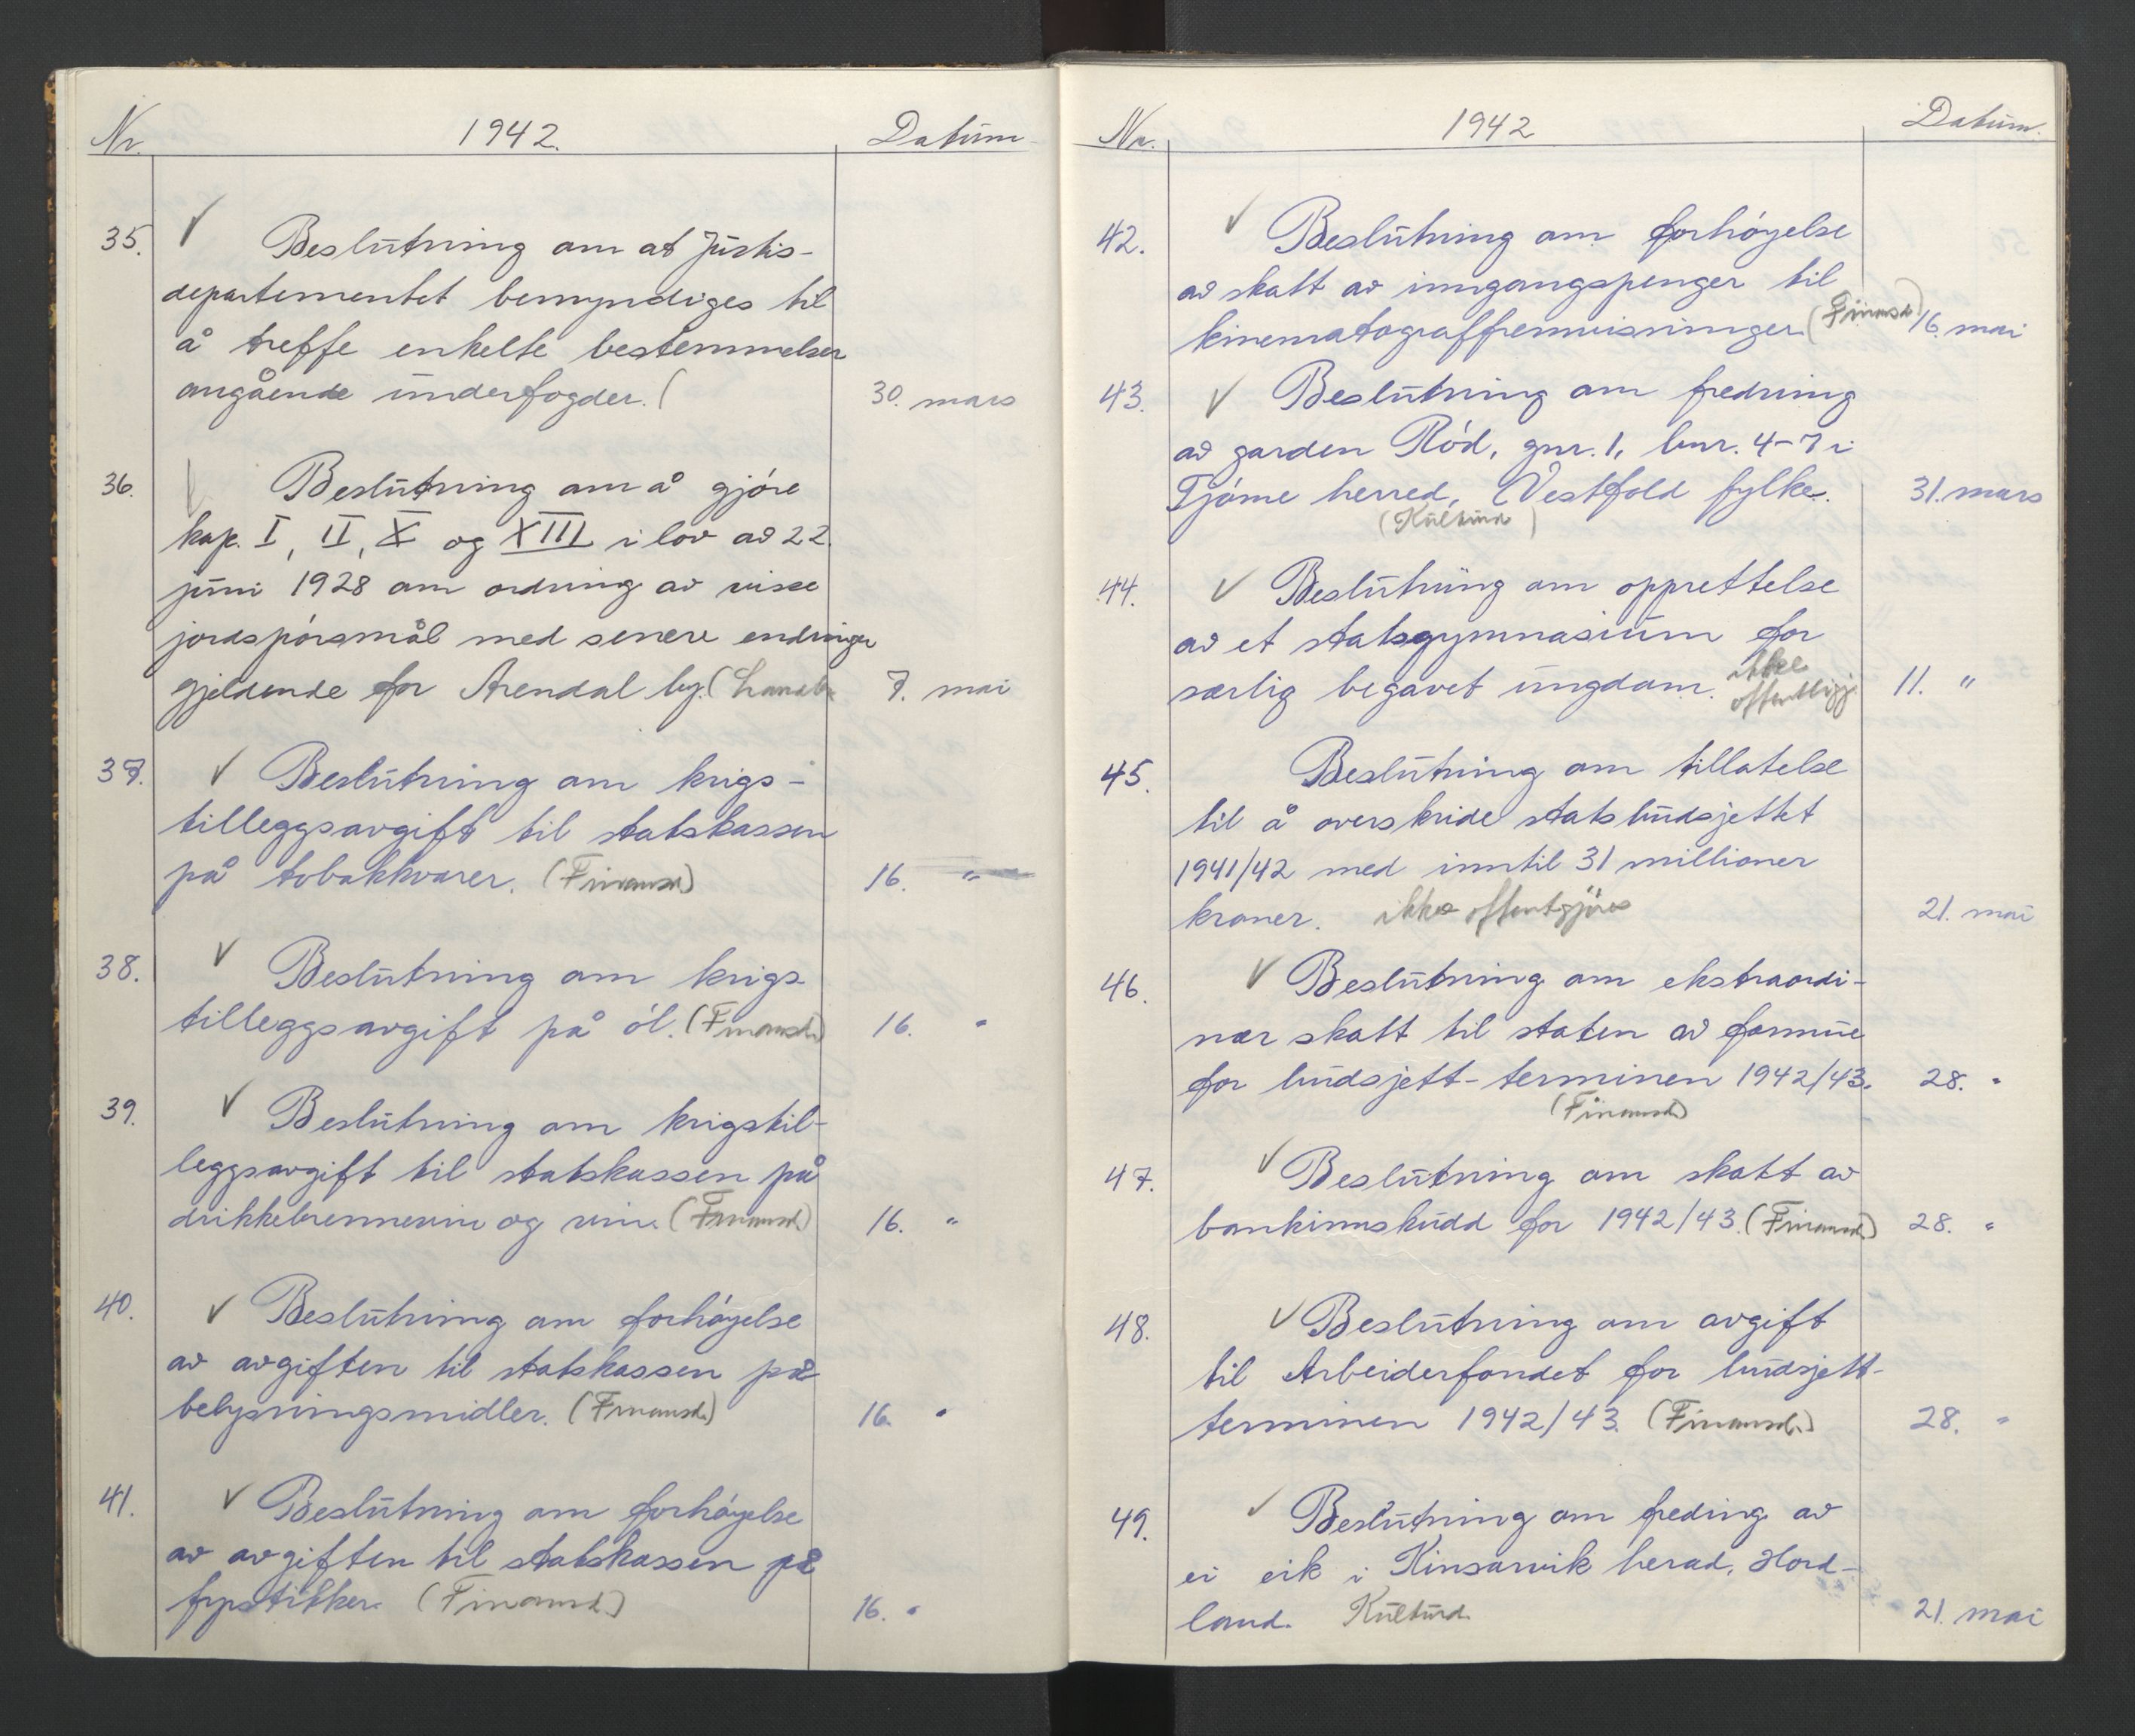 Nr. 1942. Datum
35. Beslutning om at Justis-
departementet bemyndiges til
å treffe enkelte bestemmelser
angående underfogder. ( 30. mars
36. Beslutning om å gjøre
kap. I, II, X og XIII i lov av 22.
juni 1928 om ordning av visse
jordspørsmål med senere endringer
gjeldende for Arendal by. (Landbr. 7. mai
37. Beslutning om krigs-
tilleggsavgift til statskassen
på tobakkvarer. (Finansd.) 16. "
38. Beslutning om krigs
tilleggsavgift på øl. (Finansd.) 16. "
39. Beslutning om krigstil-
leggsavgift til statskassen på
drikkebrennevin og vin. (Finansd.) 16. "
40. Beslutning om forhøyelse
av avgiften til statskassen på
belysningsmidler. (Finansd.) 16. "
41. Beslutning om forhøyelse
av avgiften til statskassen på
fyrstikker. (Finansd.) 16. "
Nr. 1942 Datum.
42. Beslutning om forhøyelse
av skatt av inngangspenger til
kinematograffremvisninger. (Finansd.) 16. mai
43. Beslutning om fredning
av garden Rød, gnr. 1, bnr. 4-7 i
Tjøme herred, Vestfold fylke. 31. mars
(Kulturd.)
44. Beslutning om opprettelse
av et statsgymnasium for
særlig begavet ungdom. ikke offentliggj. 11. "
45. Beslutning om tillatelse
til å overskride statsbudsjettet
1941/42 med inntil 31 millioner
kroner. ikke offentgjöres 21. mai
46. Beslutning om ekstraordi-
nær skatt til staten av formue
for budsjett-terminen 1942/43. 28. "
(Finansd.)
47. Beslutning om skatt av
bankinnskudd for 1942/43. (Finansd.) 28. "
48. Beslutning om avgift
til Arbeiderfondet for budsjett-
terminen 1942/43. (Finansd.) 28. "
49. Beslutning om freding av
ei eik i Kinsarvik herad, Hord-
land. Kulturd. 21. mai